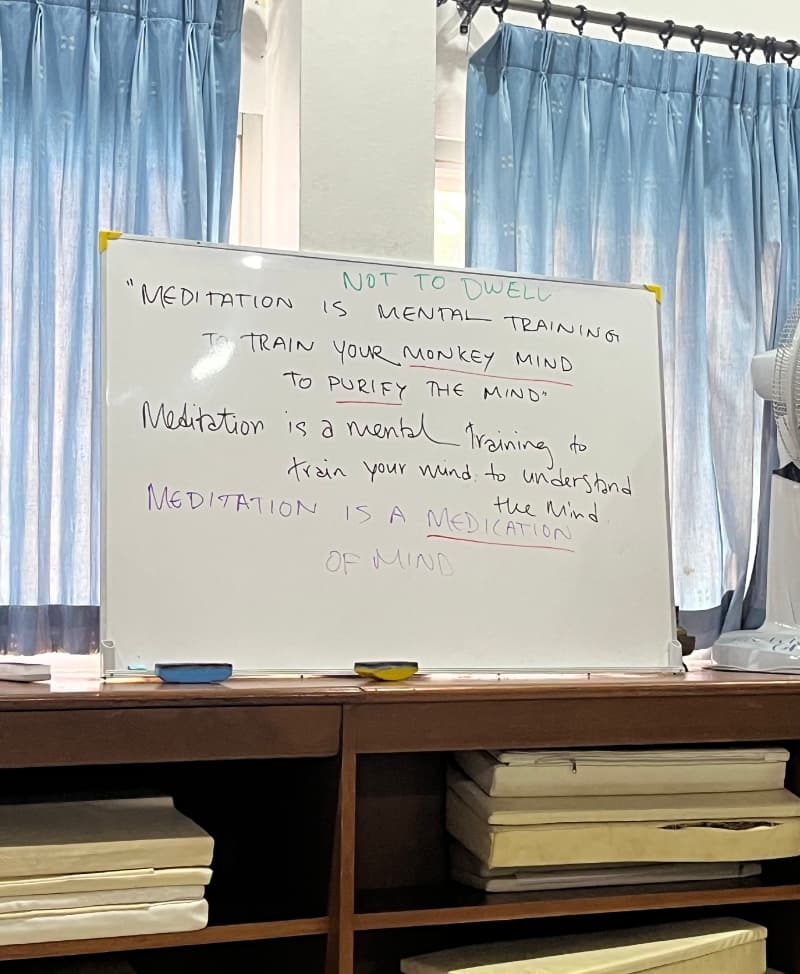 NOT TO DWELL
"MEDITATION IS MENTAL TRAINING
TO TRAIN YOUR MONKEY MIND
TO PURIFY THE MIND"
Meditation is a mental training to
train your mind to understand
the Mind.
MEDITATION IS A MEDICATION
OF MIND